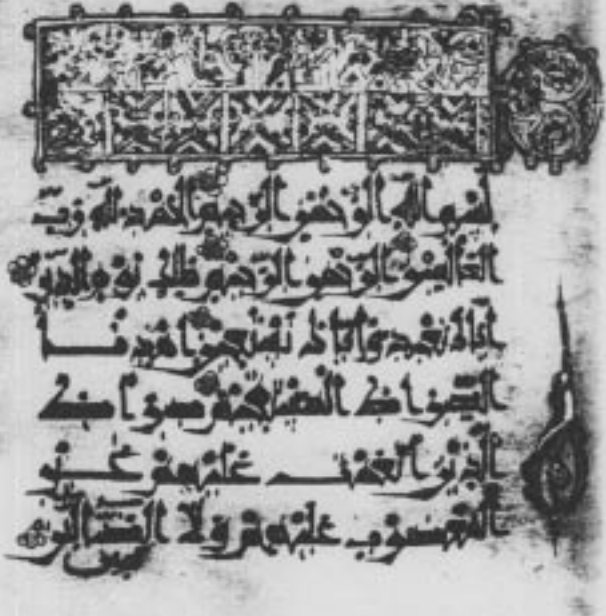 بسم الله الرحمن الرحيم الحمد لله رب
العالمين الرحمن الرحيم ملك يوم الدين
إياك نعبد وإياك نستعين اهدنا
الصراط المستقيم صراط
الذين أنعمت عليهم غير
المغضوب عليهم ولا الضالين